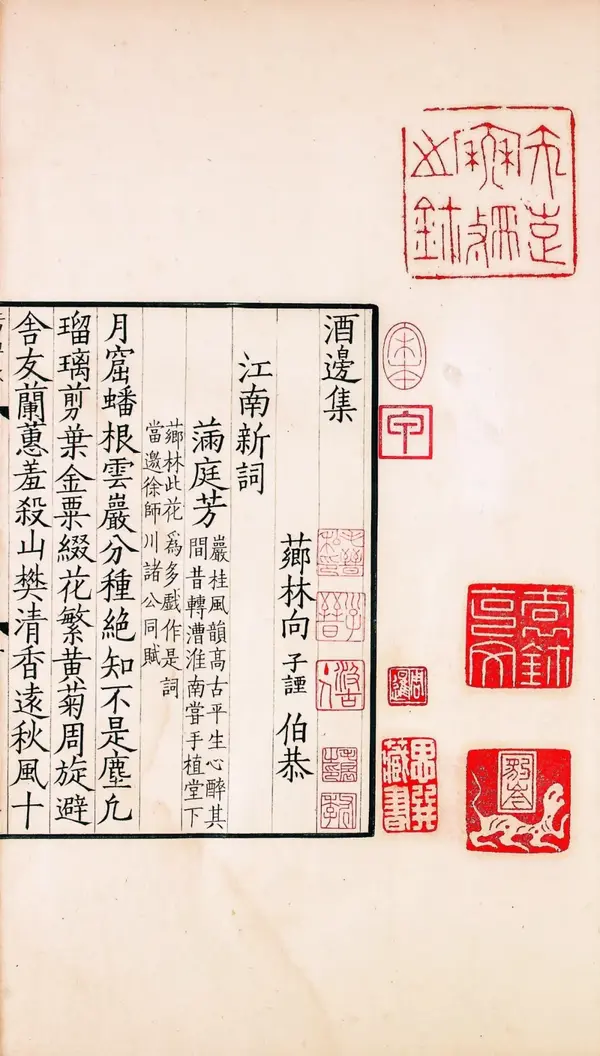 宋本
甲
周暹
酒邊集
薌林向 子諲 伯恭
江南新詞
滿庭芳
巖桂風韻高古平生心醉其
間昔轉漕淮南嘗手植堂下
薌林此花爲多戲作是詞
當邀徐師川諸公同賦
月窟蟠根雲巖分種絶知不是塵凡
瑠璃剪葉金粟綴花繁黃菊周旋避
舍友蘭蕙羞殺山樊清香遠秋風十